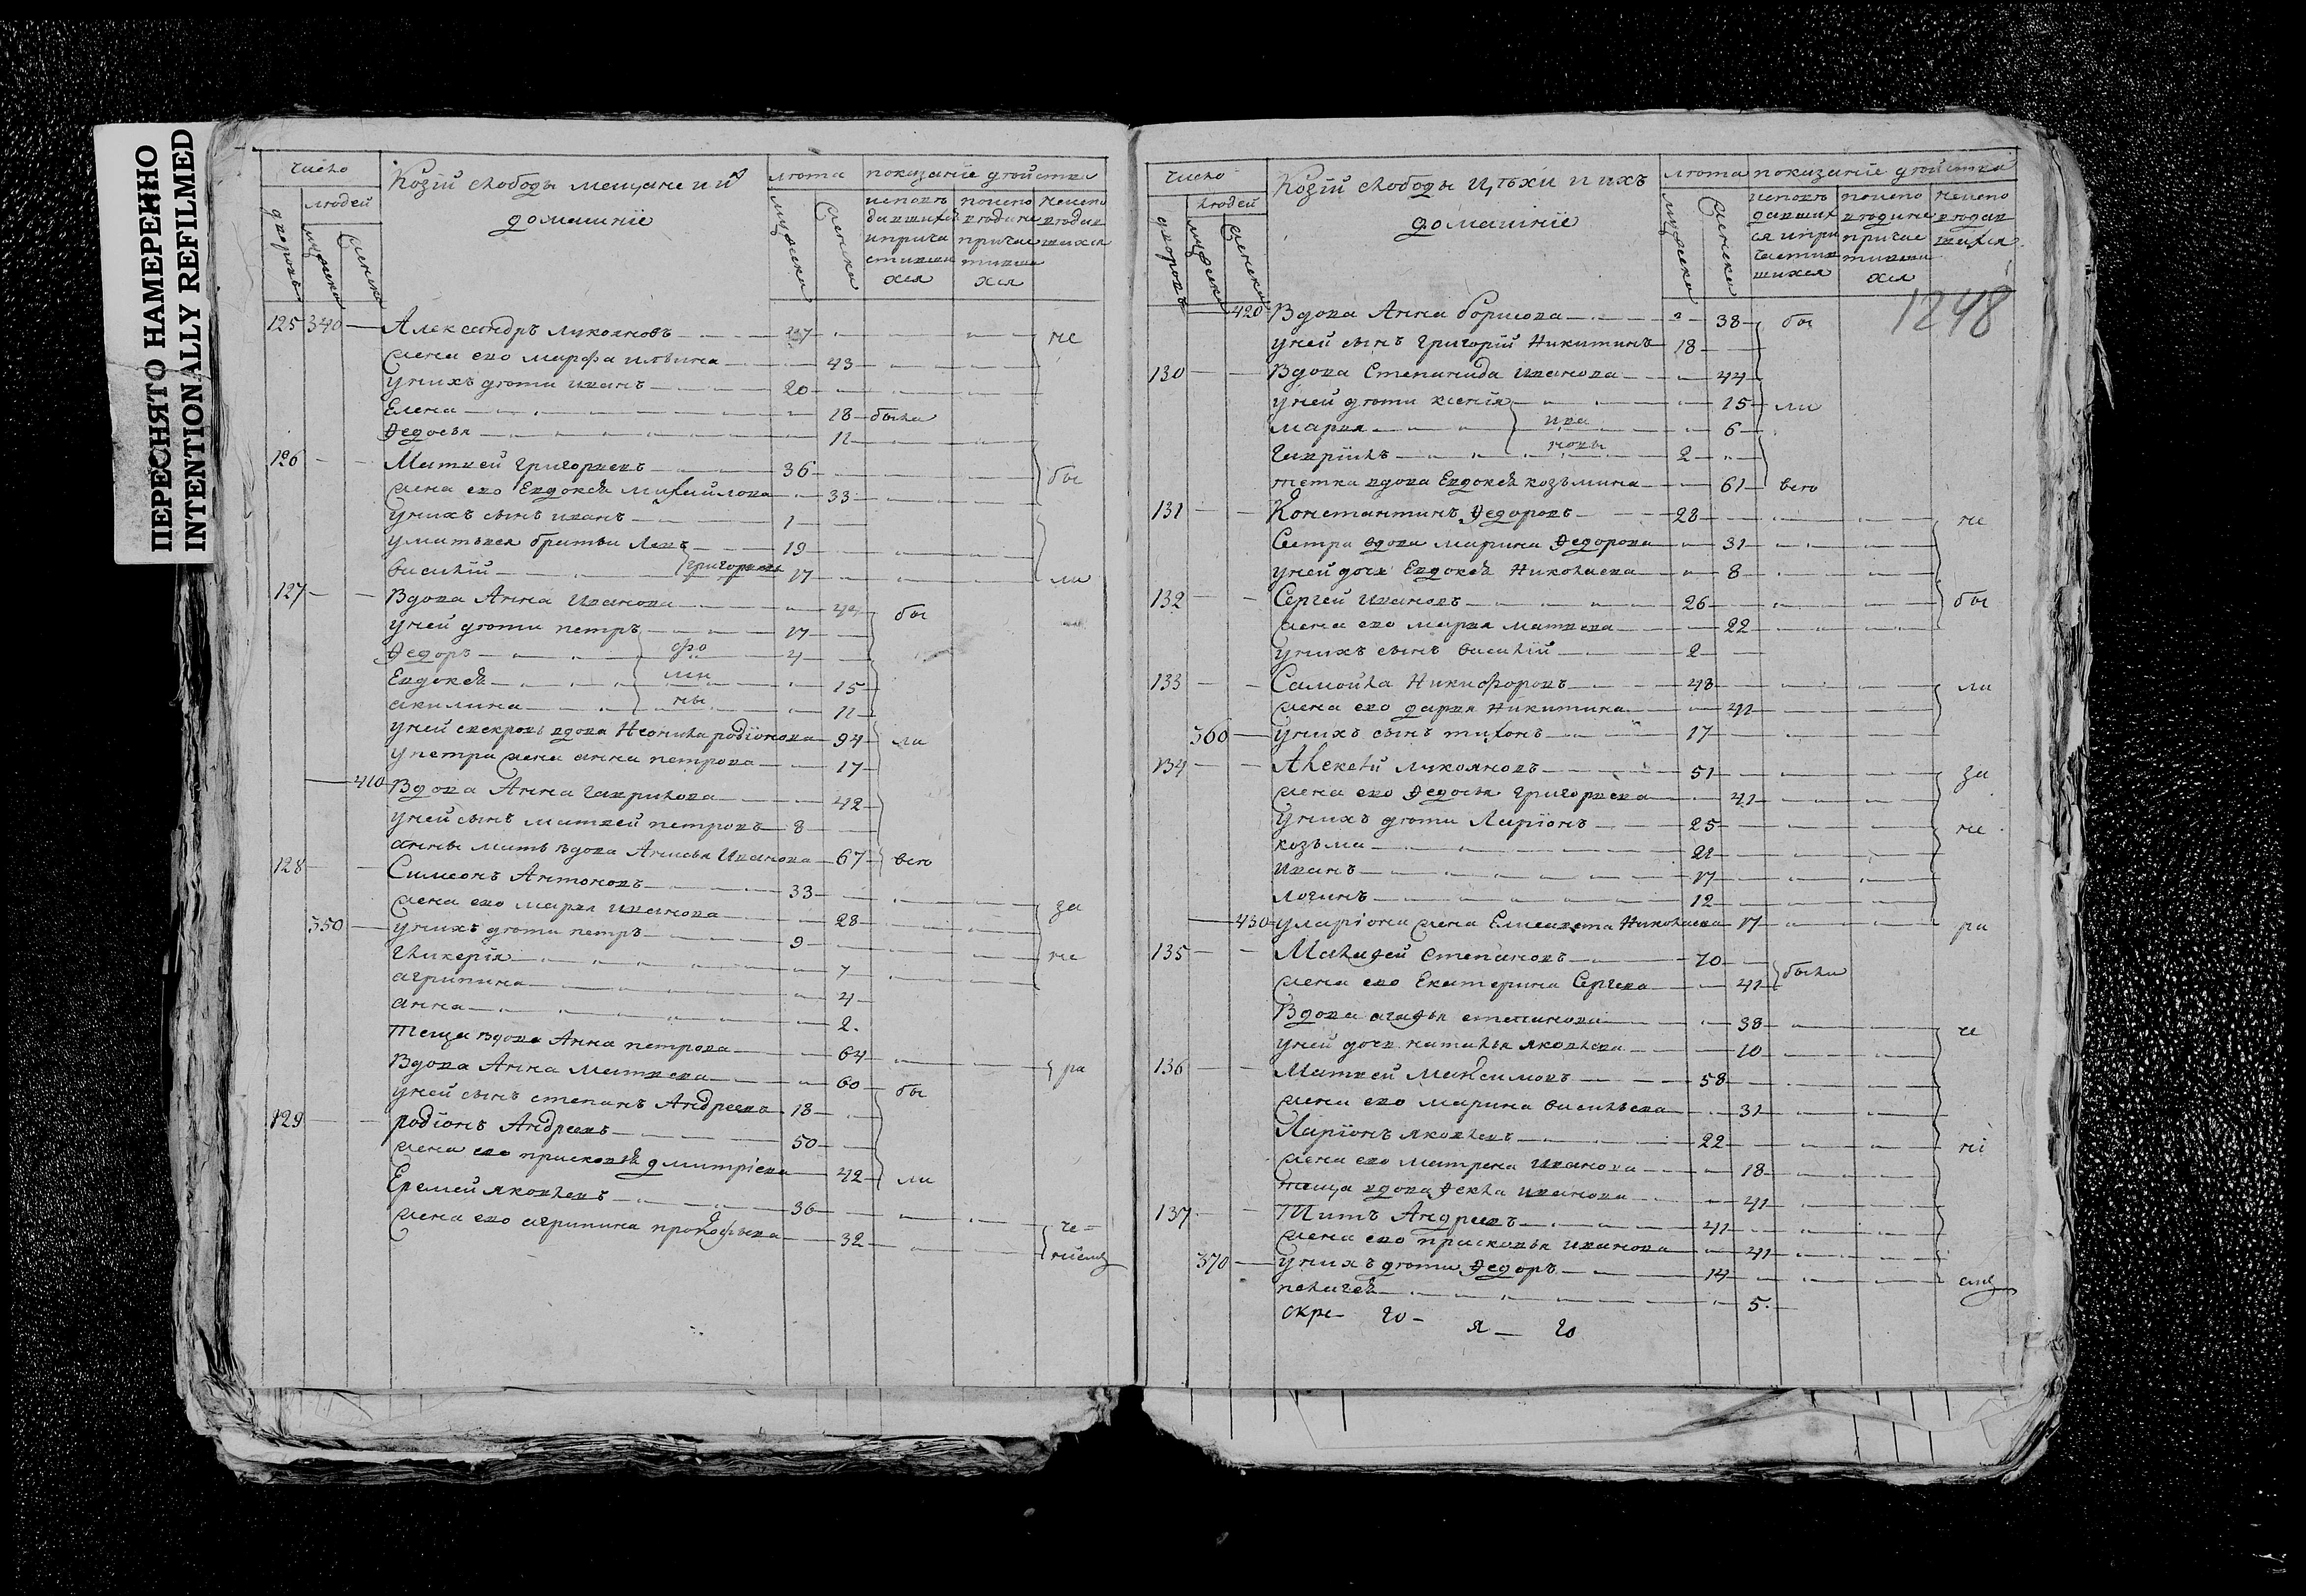 ПЕРЕСНЯТО НАМЕРЕННО
INTENTIONALLY REFILMED
число
Козѣй слободы мещане и их
домашнїе
лѣта
показанїе двойства
людей
дворовъ
мужеска
женска
мужеска
женска
исповѣдавшихся и причастившихся
неисповѣдавшихся
125 340 Александръ лукояновъ 47 не
жена ево марфа ильина 43
у нихъ дѣти иванъ 20
Елена 18 была
Ѳедосья 11
126 Матвей григорьевъ 36 бы
жена ево Евдокея михайлова 33
у нихъ сынъ иванъ 1
у матвея братьи Левъ 19
василїй григорьевы 17 ли
127 Вдова Анна иванова 44 бы
у ней дѣти петръ 17
Ѳедоръ фо 4
Евдокея ми 15
акилина ны 11
у ней свекровь вдова Неонила родїонова 94 ли
у петра жена анна петрова 17
410 Вдова Анна гаврилова 42
у ней сынъ матвей петровъ 8
анны мать вдова Анисья Иванова 67 всего
128 Симеонъ Антоновъ 33
жена ево марья иванова 28 за
350 у нихъ дѣти петръ 9
гликерїя 7 не
агрипина 4
анна 2
теща вдова Анна петрова 64
Вдова Анна матвеева 60 ра
у ней сынъ степанъ Андреевъ 18 бы
129 родїонъ Андреевъ 50
жена ево прасковья дмитрїева 42 ли
Еремей яковлевъ 36
жена ево агрипина прокофьева 32
число
Козѣй слободы
и ихъ
домашнїе
лѣта
показанїе двойства
людей
дворовъ
мужеска
женска
мужеска
женска
1248
420 Вдова Анна борисова 38 бы
у ней сынъ григорїй Никитинъ 18
130 Вдова Степанида иванова 44
у ней дѣти ксенїя 15 ли
марья ива 6
гаврїилъ новы 2
тетка вдова Евдокея козьмина 61 всего
131 Константинъ Ѳедоровъ 28 не
Сестра вдова марина Ѳедорова 31
у ней дочь Евдокея Николаева 8
132 Сергей ивановъ 26 бы
жена ево марья матвеева 22
у нихъ сынъ василїй 2
133 Самойла Никифоровъ 48 ли
жена ево дарья никитина 41
360 у нихъ сынъ тихонъ 17
134 Алексѣй лукояновъ 51 за
жена ево Ѳедосья григорьева 41
у нихъ дѣти Ларїонъ 25 не
козьма 21
иванъ 17
логинъ 12
430 у ларїона жена Елисавета Николаева 17 ра
135 Малафей степановъ 70
жена ево Екатерина Сергеева 41 были
Вдова агафья степанова 38
у ней дочь наталья яковлева 10
136 Матвей Максимовъ 58
жена ево марина васильева 31
Ларїонъ яковлевъ 22
жена ево матрена иванова 18
теща вдова Ѳекла иванова 41
137 Титъ Андреевъ 41
жена ево прасковья иванова 41
370 у нихъ дѣти Ѳедоръ 14
пелагея 5